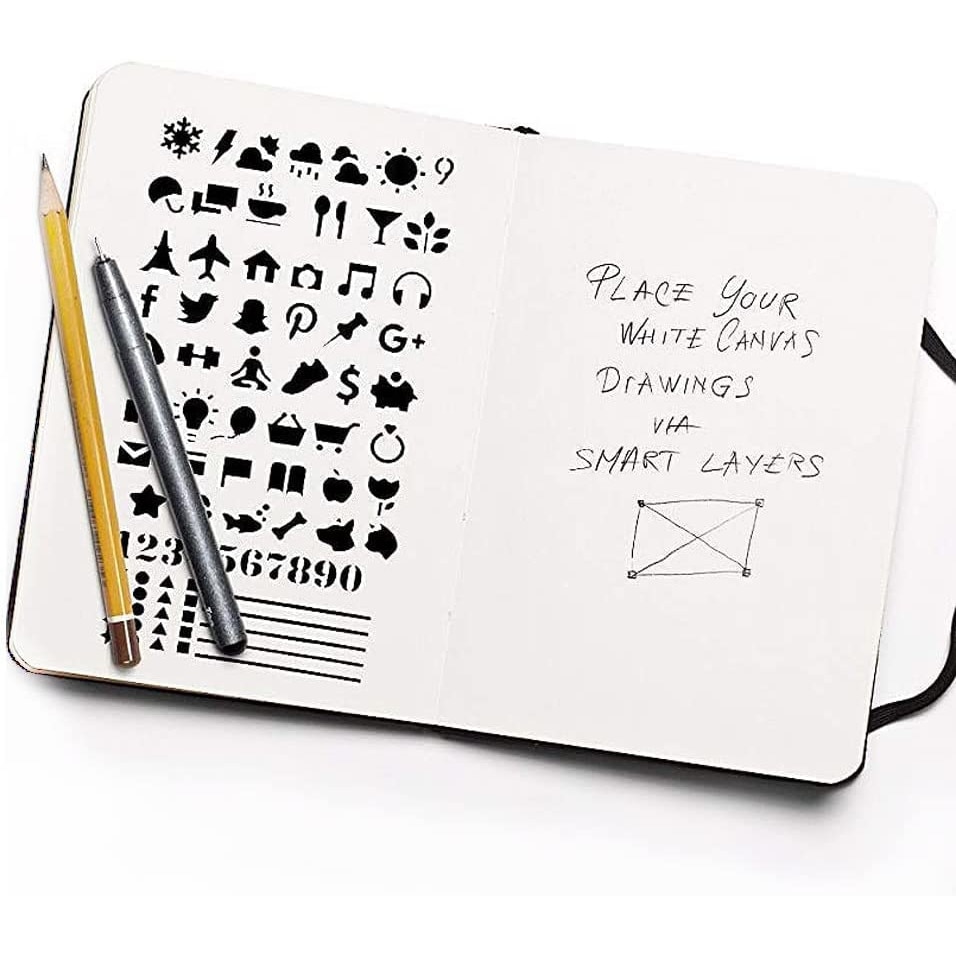 f G+
$
123 567890
PLACE YOUR
WHITE CANVAS
DRAWINGS
VIA
SMART LAYERS